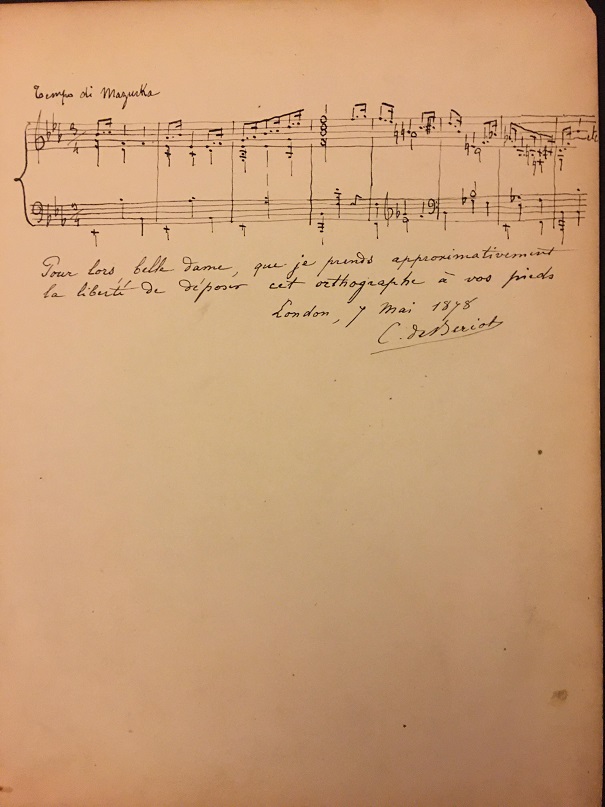 Tempo di Mazurka
3/4
3/4
etc
Pour lors, belle dame, que je prends approximativement
la liberté de déposer cet orthographe à vos pieds
London, 7 Mai 1878
C. de Beriot